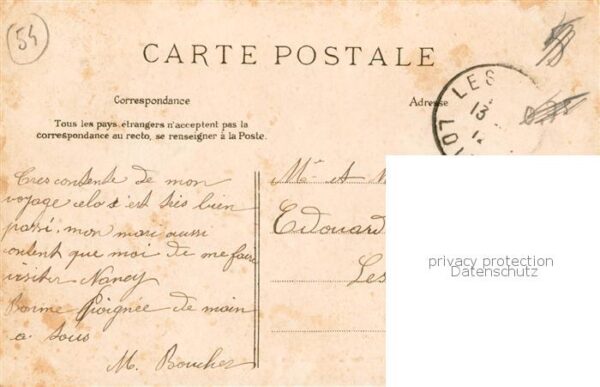 54
CARTE POSTALE
Correspondance
Adresse
Tous les pays étrangers n'acceptent pas la
correspondance au recto, se renseigner à la Poste.
LES
13
12
LOT
Tres contente de mon
voyage cela c'est très bien
passé, mon mari aussi
content que moi de me faire
visiter Nancy
Bonne Poignée de main
a tous
M. Boucher
Mr et
Edouard
Les
privacy protection
Datenschutz